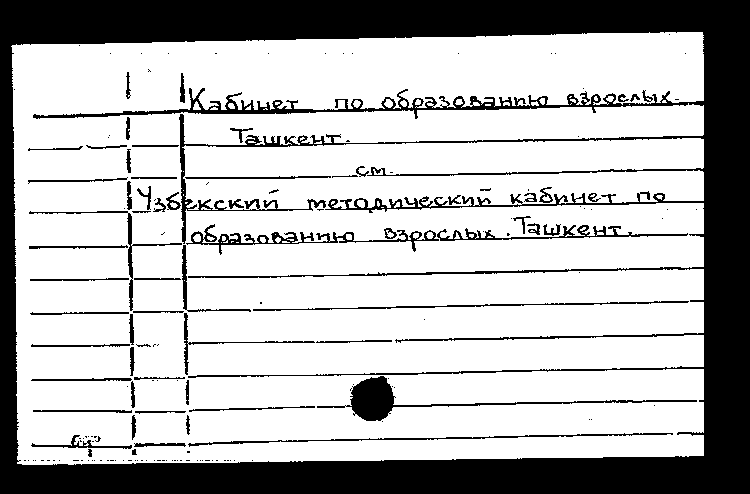 Кабинет по образованию взрослых.
Ташкент.
см.
Узбекский методический кабинет по
образованию взрослых. Ташкент.